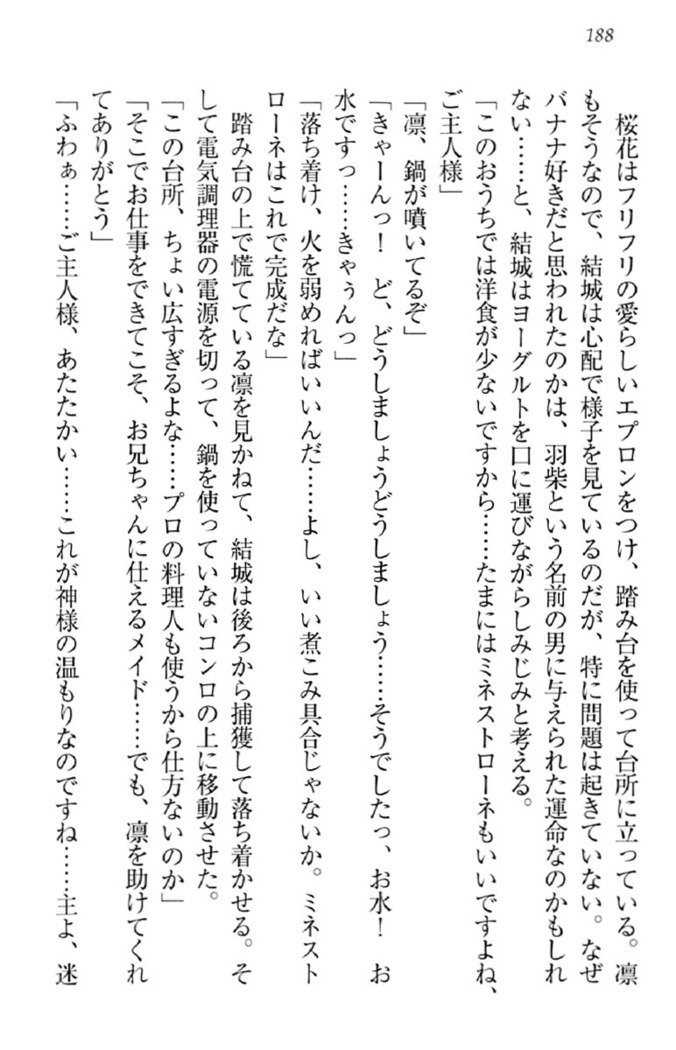 188
桜花はフリフリの愛らしいエプロンをつけ、踏み台を使って台所に立っている。凛
もそうなので、結城は心配で様子を見ているのだが、特に問題は起きていない。なぜ
バナナ好きだと思われたのかは、羽柴という名前の男に与えられた運命なのかもしれ
ない……と、結城はヨーグルトを口に運びながらしみじみと考える。
「このおうちでは洋食が少ないですから……たまにはミネストローネもいいですよね、
ご主人様」
「凛、鍋が噴いてるぞ」
「きゃーんっ！　ど、どうしましょうどうしましょう……そうでしたっ、お水！　お
水ですっ……きゃぅんっ」
「落ち着け、火を弱めればいいんだ……よし、いい煮こみ具合じゃないか。ミネスト
ローネはこれで完成だな」
踏み台の上で慌てている凛を見かねて、結城は後ろから捕獲して落ち着かせる。そ
して電気調理器の電源を切って、鍋を使っていないコンロの上に移動させた。
「この台所、ちょい広すぎるよな……プロの料理人も使うから仕方ないのか」
「そこでお仕事をできてこそ、お兄ちゃんに仕えるメイド……でも、凛を助けてくれ
てありがとう」
「ふわぁ……ご主人様、あたたかい……これが神様の温もりなのですね……主よ、迷